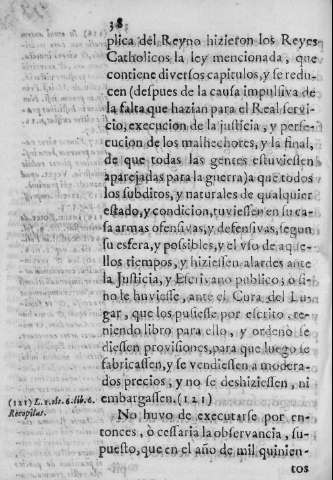 38
plica del Reyno hizieron los Reyes
Catholicos la ley mencionada, que
contiene diversos capitulos, y se redu-
cen (despues de la causa impulsiva de
la falta que hazian para el Real servi-
cio, execucion de la justicia, y perse-
cucion de los malhechores, y la final,
de que todas las gentes estuviessen
aparejadas para la guerra) a que todos
los subditos, y naturales de qualquier
estado, y condicion, tuviessen en su ca-
sa armas ofensivas, y defensivas, segun
su esfera, y posibles, y el vso de aque-
llos tiempos, y hiziessen alardes ante
la Justicia, y Escrivano publico; ò si
no le huviesse, ante el Cura del Lu-
gar, que los pusiesse por escrito, te-
niendo libro para ello, y ordenò se
diessen provisiones, para que luego se
fabricassen, y se vendiessen a modera-
dos precios, y no se deshiziessen, ni
embargassen. (121)
(121) L. 1. tit. 6. lib. 6.
Recopilat.
No huvo de executarse por en-
tonces, ò cessaria la observancia, su-
puesto, que en el año de mil quinien-
tos